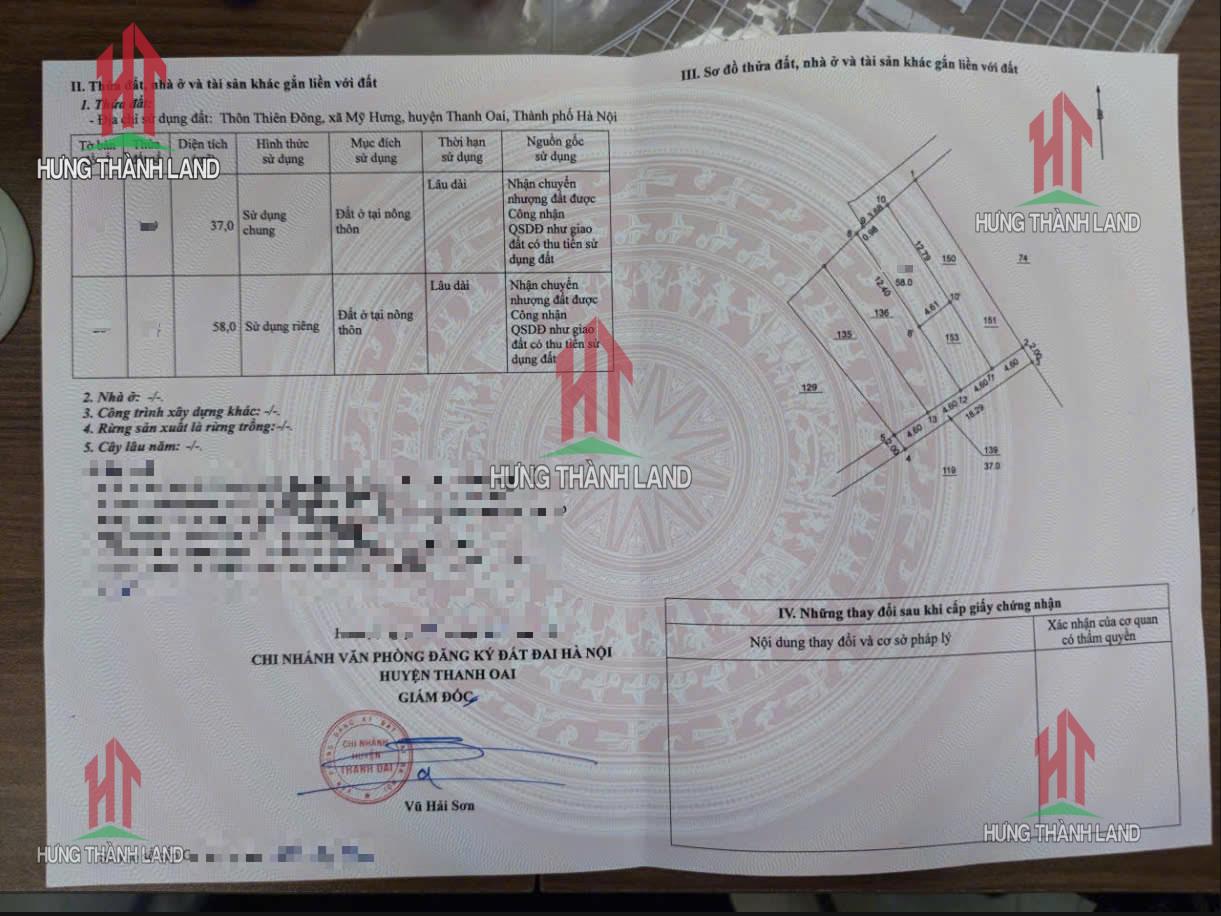 II. Thửa đất, nhà ở và tài sản khác gắn liền với đất
1. Thửa đất:
- Địa chỉ sử dụng đất: Thôn Thiên Đông, xã Mỹ Hưng, huyện Thanh Oai, Thành phố Hà Nội
Tờ bản Thửa Diện tích Hình thức sử dụng Mục đích sử dụng Thời hạn sử dụng Nguồn gốc sử dụng
37,0 Sử dụng chung Đất ở tại nông thôn Lâu dài Nhận chuyển nhượng đất được Công nhận QSDĐ như giao đất có thu tiền sử dụng đất
58,0 Sử dụng riêng Đất ở tại nông thôn Lâu dài Nhận chuyển nhượng đất được Công nhận QSDĐ như giao đất có thu tiền sử dụng đất
2. Nhà ở: -/-.
3. Công trình xây dựng khác: -/-.
4. Rừng sản xuất là rừng trồng:-/-.
5. Cây lâu năm: -/-.
CHI NHÁNH VĂN PHÒNG ĐĂNG KÝ ĐẤT ĐAI HÀ NỘI
HUYỆN THANH OAI
GIÁM ĐỐC
CHI NHÁNH
HUYỆN
THANH OAI
Vũ Hải Sơn
III. Sơ đồ thửa đất, nhà ở và tài sản khác gắn liền với đất
B
1
10
3.68
9
8
0.98
12.79
150
74
58.0
12.40
10'
4.61
136
8'
151
135
153
2
2.00
3
4.60
11
4.60
129
12
4.60
18.29
13
4.60
5
2.00
4
139
37.0
119
IV. Những thay đổi sau khi cấp giấy chứng nhận
Nội dung thay đổi và cơ sở pháp lý
Xác nhận của cơ quan
có thẩm quyền
HƯNG THÀNH LAND
HƯNG THÀNH LAND
HƯNG THÀNH LAND
HƯNG THÀNH LAND
HƯNG THÀNH LAND